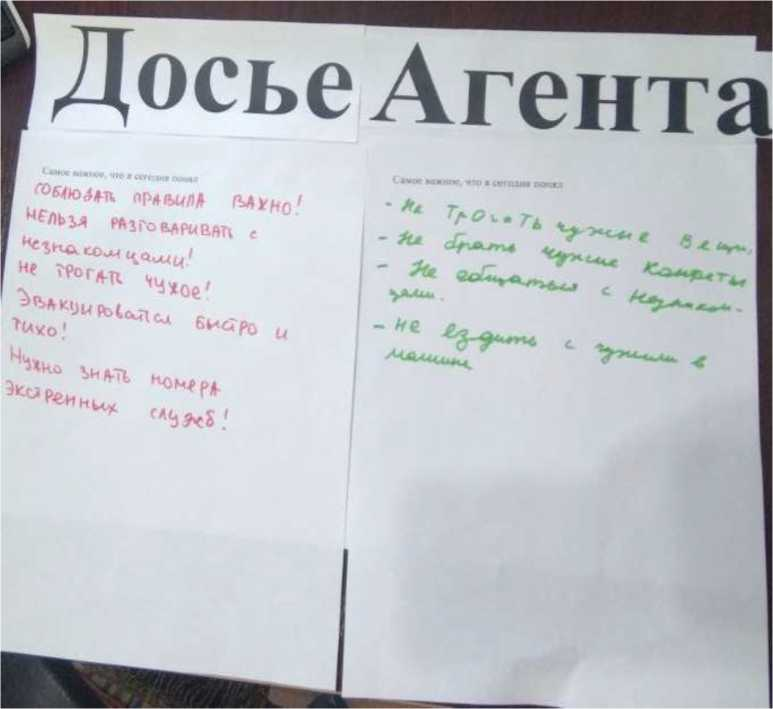 Досье Агента
Самое важное, что я сегодня понял
СОБЛЮДАТЬ ПРАВИЛА ВАЖНО!
НЕЛЬЗЯ РАЗГОВАРИВАТЬ с
незнакомцами!
НЕ ТРОГАТЬ ЧУЖОЕ!
Эвакуироваться БЫСТРО и
тихо!
Нужно ЗНАТЬ НОМЕРА
ЭКСТРЕННЫХ СЛУЖБ!
Самое важное, что я сегодня понял
- Не ТрОгаТь чужие вещи.
- Не брать чужие конфеты
- Не общаться с незнаком-
цами.
- не ездить с чужими в
машине